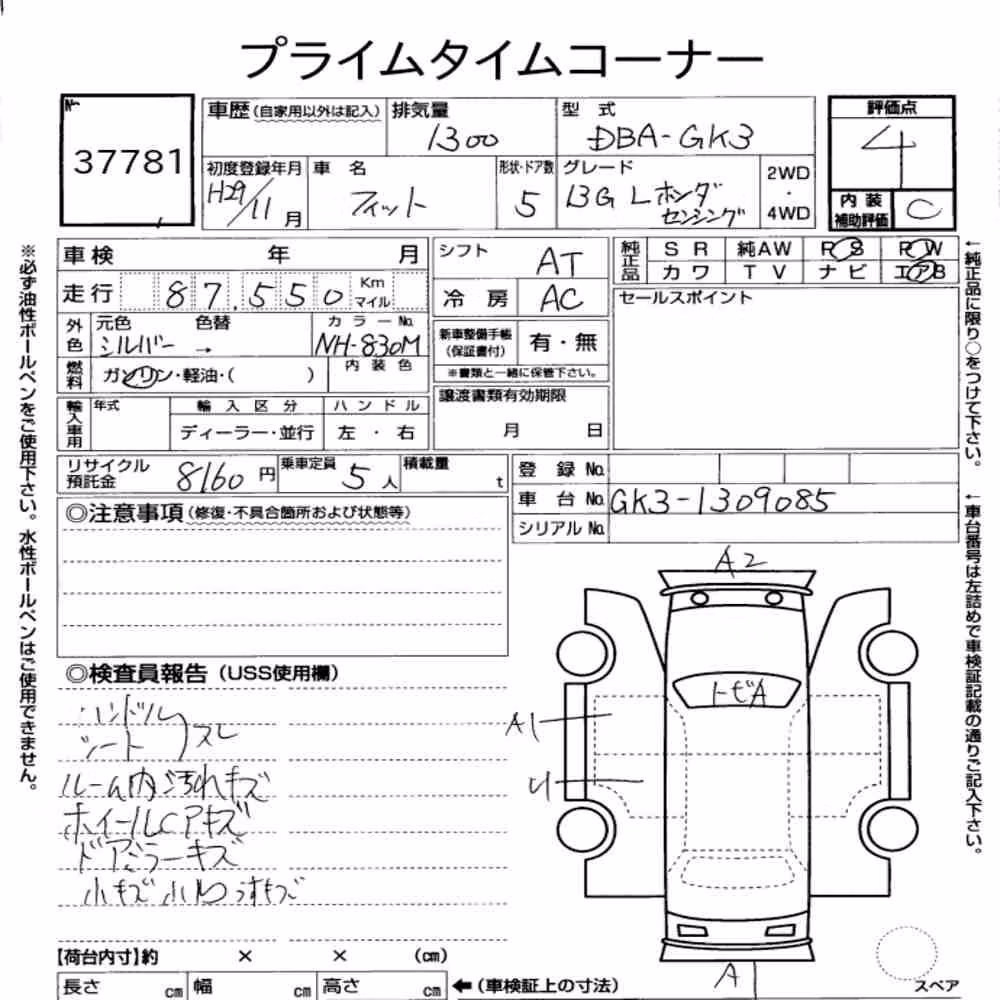 プライムタイムコーナー
No. 37781
車歴(自家用以外は記入)
排気量 1300
型式 DBA-GK3
評価点 4
初度登録年月 H29/11月
車名 フィット
形状・ドア数 5
グレード 13G L ホンダ
センシング
2WD
・
4WD
内装
補助評価 C
車検 年 月
走行 87.550 Km
マイル
シフト AT
冷房 AC
純正品 SR 純AW PS PW
カワ TV ナビ エアB
セールスポイント
外色 元色 シルバー → 色替
カラーNo. NH-830M
新車整備手帳
(保証書付) 有・無
※書類と一緒に保管下さい。
燃料 ガソリン・軽油・( )
内装色
輸入車用 年式 輸入区分 ハンドル
ディーラー・並行 左・右
譲渡書類有効期限
月 日
リサイクル
預託金 8160円
乗車定員 5人
積載量 t
登録No.
車台No. GK3-1309085
シリアルNo.
◎注意事項(修復・不具合箇所および状態等)
◎検査員報告(USS使用欄)
ハンドル
シート スレ
ルーム内汚れキズ
ホイールCアキズ
ドアミラーキズ
小キズ小凹うすキズ
A2
トビA
A1
U
A
スペア
【荷台内寸】約 × × (cm)
長さ cm 幅 cm 高さ cm ←(車検証上の寸法)
※必ず油性ボールペンをご使用下さい。水性ボールペンはご使用できません。
←純正品に限り○をつけて下さい。
←車台番号は左詰めで車検証記載の通りご記入下さい。